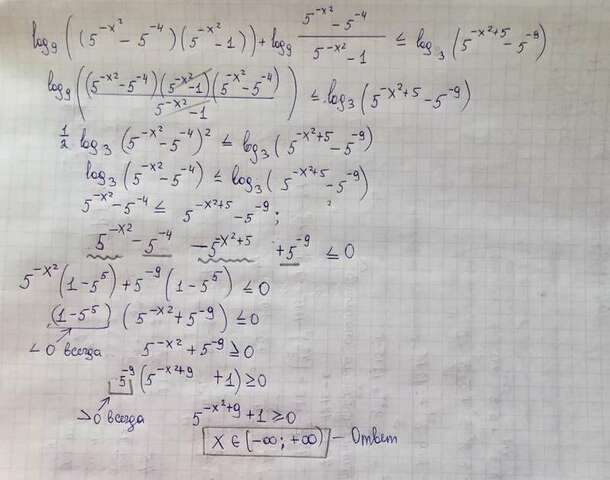 log₉((5^(-x²) - 5^(-4))(5^(-x²) - 1)) + log₉ (5^(-x²) - 5^(-4))/(5^(-x²) - 1) ≤ log₃(5^(-x²+5) - 5^(-9))
log₉(((5^(-x²) - 5^(-4))(5^(-x²) - 1)(5^(-x²) - 5^(-4)))/(5^(-x²) - 1)) ≤ log₃(5^(-x²+5) - 5^(-9))
1/2 log₃(5^(-x²) - 5^(-4))² ≤ log₃(5^(-x²+5) - 5^(-9))
log₃(5^(-x²) - 5^(-4)) ≤ log₃(5^(-x²+5) - 5^(-9))
5^(-x²) - 5^(-4) ≤ 5^(-x²+5) - 5^(-9);
5^(-x²) - 5^(-4) - 5^(-x²+5) + 5^(-9) ≤ 0
5^(-x²)(1 - 5⁵) + 5^(-9)(1 - 5⁵) ≤ 0
(1 - 5⁵)(5^(-x²) + 5^(-9)) ≤ 0
< 0 всегда 5^(-x²) + 5^(-9) ≥ 0
5^(-9)(5^(-x²+9) + 1) ≥ 0
> 0 всегда 5^(-x²+9) + 1 ≥ 0
x ∈ (-∞; +∞) - Ответ